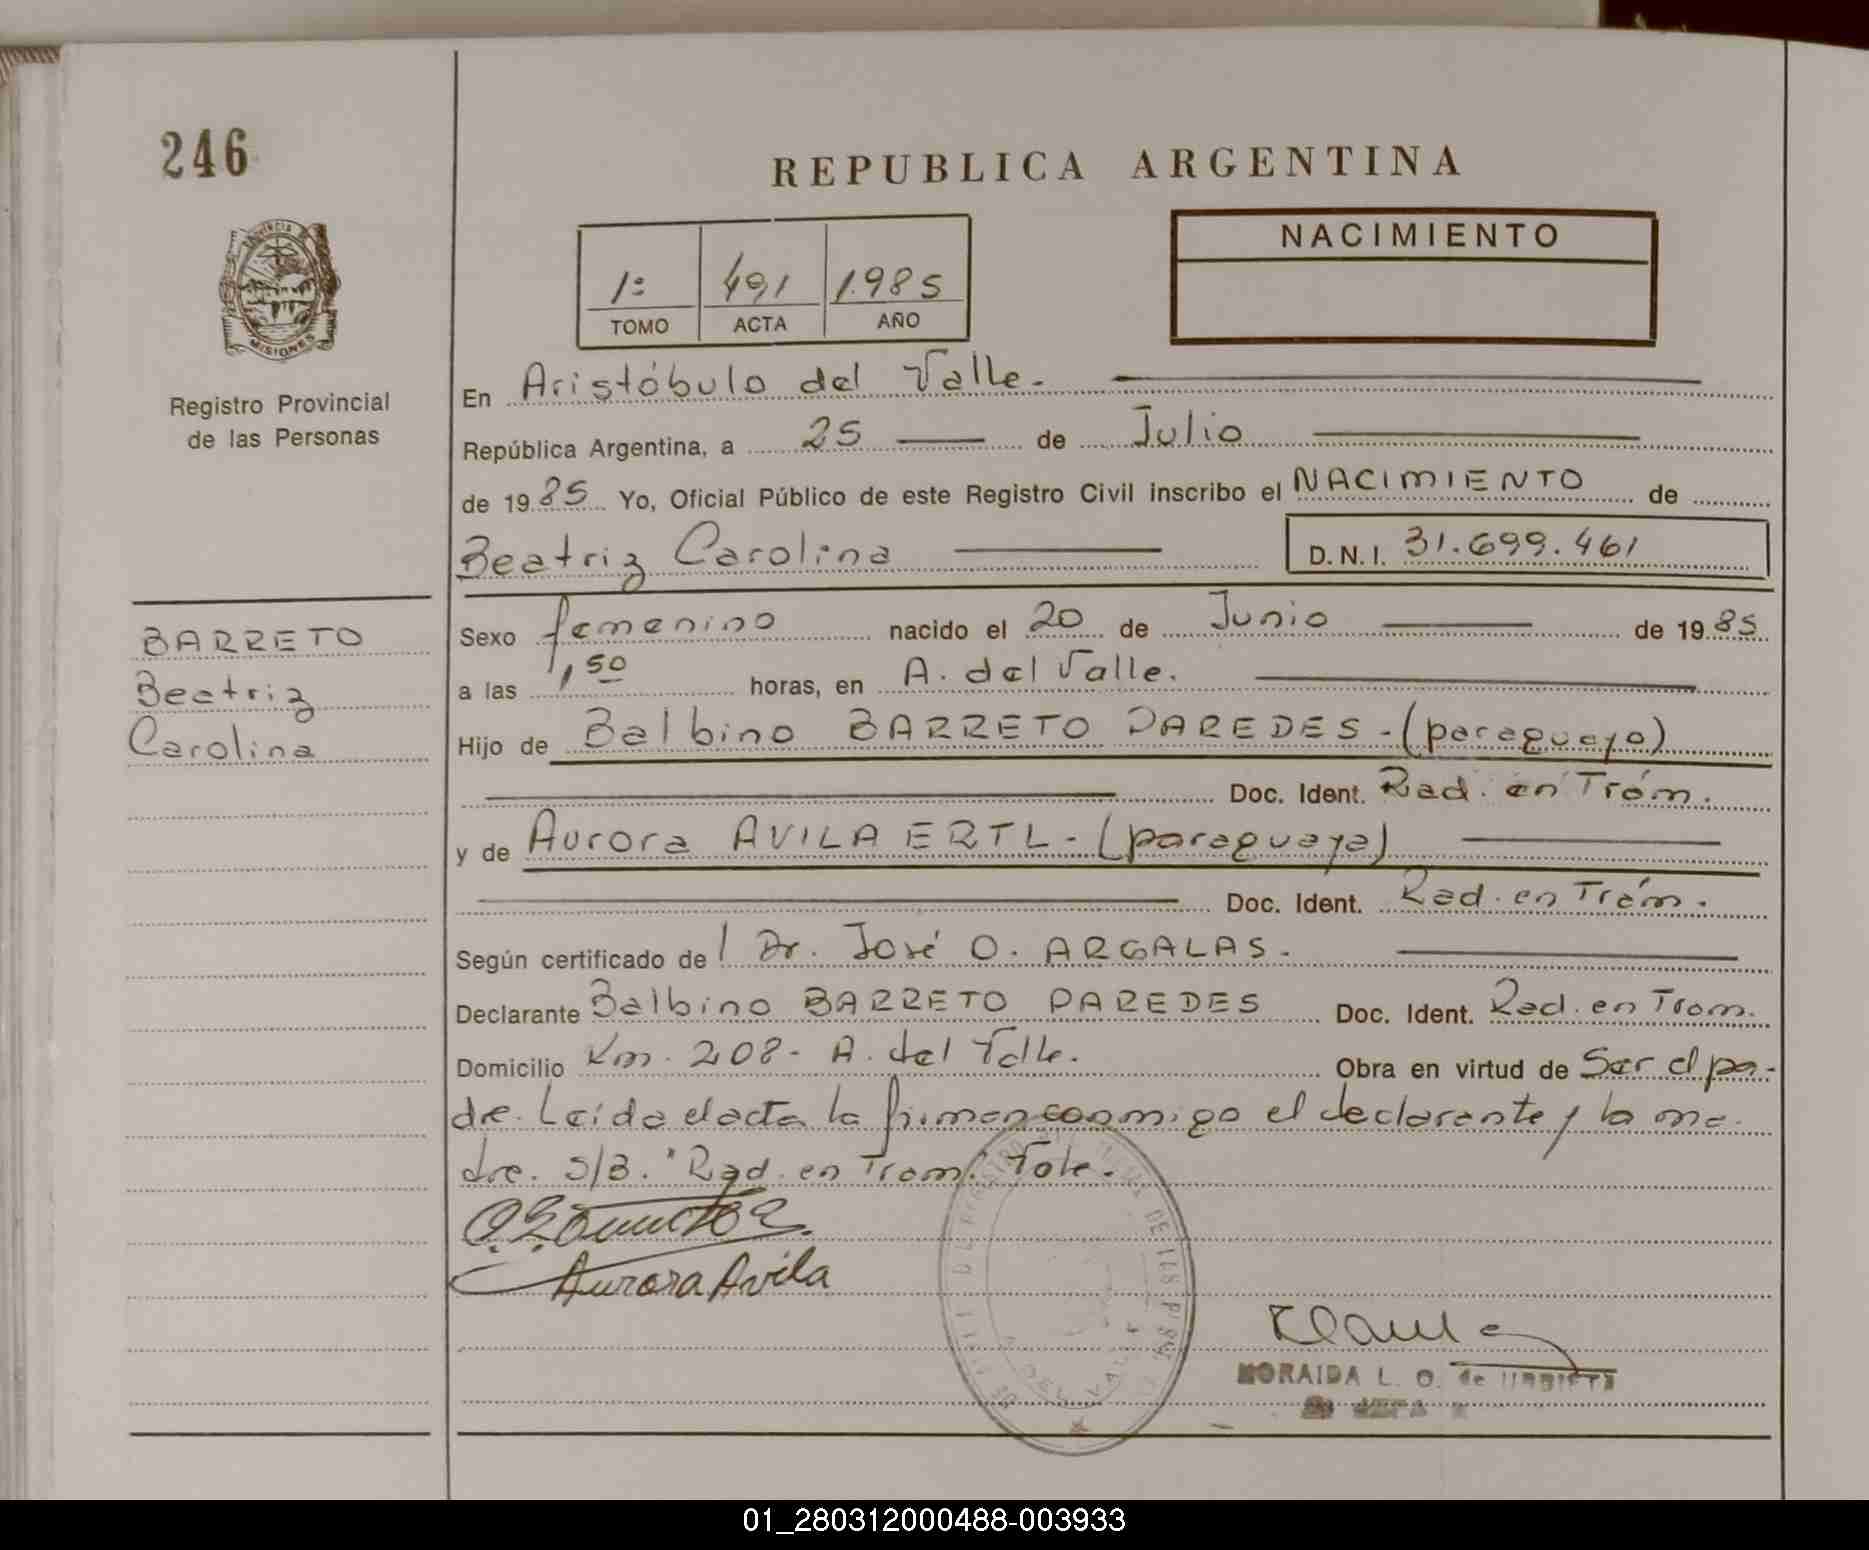 246
REPUBLICA ARGENTINA
PROVINCIA DE
MISIONES
Registro Provincial
de las Personas
1º 491 1.985
TOMO ACTA AÑO
NACIMIENTO
En Aristóbulo del Valle.
República Argentina, a 25 de Julio
de 1985 Yo, Oficial Público de este Registro Civil inscribo el NACIMIENTO de
Beatriz Carolina D.N.I. 31.699.461
BARRETO
Beatriz
Carolina
Sexo femenino nacido el 20 de Junio de 1985
a las 1,50 horas, en A. del Valle.
Hijo de Balbino BARRETO PAREDES-(paraguayo)
Doc. Ident. Rad. en Trám.
y de Aurora AVILA ERTL-(paraguaya)
Doc. Ident. Rad. en Trám.
Según certificado de l Dr. José O. ARGALAS.
Declarante Balbino BARRETO PAREDES Doc. Ident. Rad. en Tram.
Domicilio Km. 208- A. del Valle. Obra en virtud de Ser el pa-
dre. Leída el acta la firman conmigo el declarante y la ma-
dre. S/B. "Rad. en Tram." Vale.
Aurora Avila
A. DEL VALLE
MORAIDA L. O. de URBIETA
01_280312000488-003933